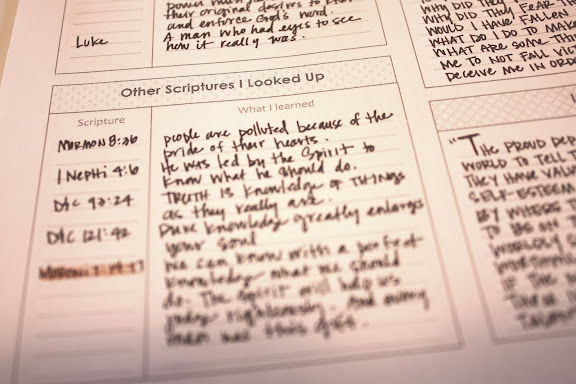 power
their original desires to
and enforce God's word.
Luke
A man who had eyes to see
how it really was.
WHY DID THEY
WHY DID THEY FEAR
WOULD I HAVE FALLEN
WHAT DO I DO TO MAKE
WHAT ARE SOME
ME TO NOT FALL VICT
DECEIVE ME IN ORD
Other Scriptures I Looked Up
Scripture
What I learned
MORMON 8:36
people are polluted because of the
pride of their hearts.
1 NEPHI 4:6
He was led by the Spirit to
know what he should do.
D&C 93:24
TRUTH IS knowledge OF THINGS
as they really are.
D&C 121:42
Pure knowledge greatly enlarges
your soul
We can know with a perfect
knowledge what we should
do. The Spirit will help us
judge righteously. And every
man has this gift.
"THE PROUD DEP
WORLD TO TELL T
THEY HAVE VALU
SELF-ESTEEM
BY WHERE T
TO BE ON T
WORLDLY
IF THE